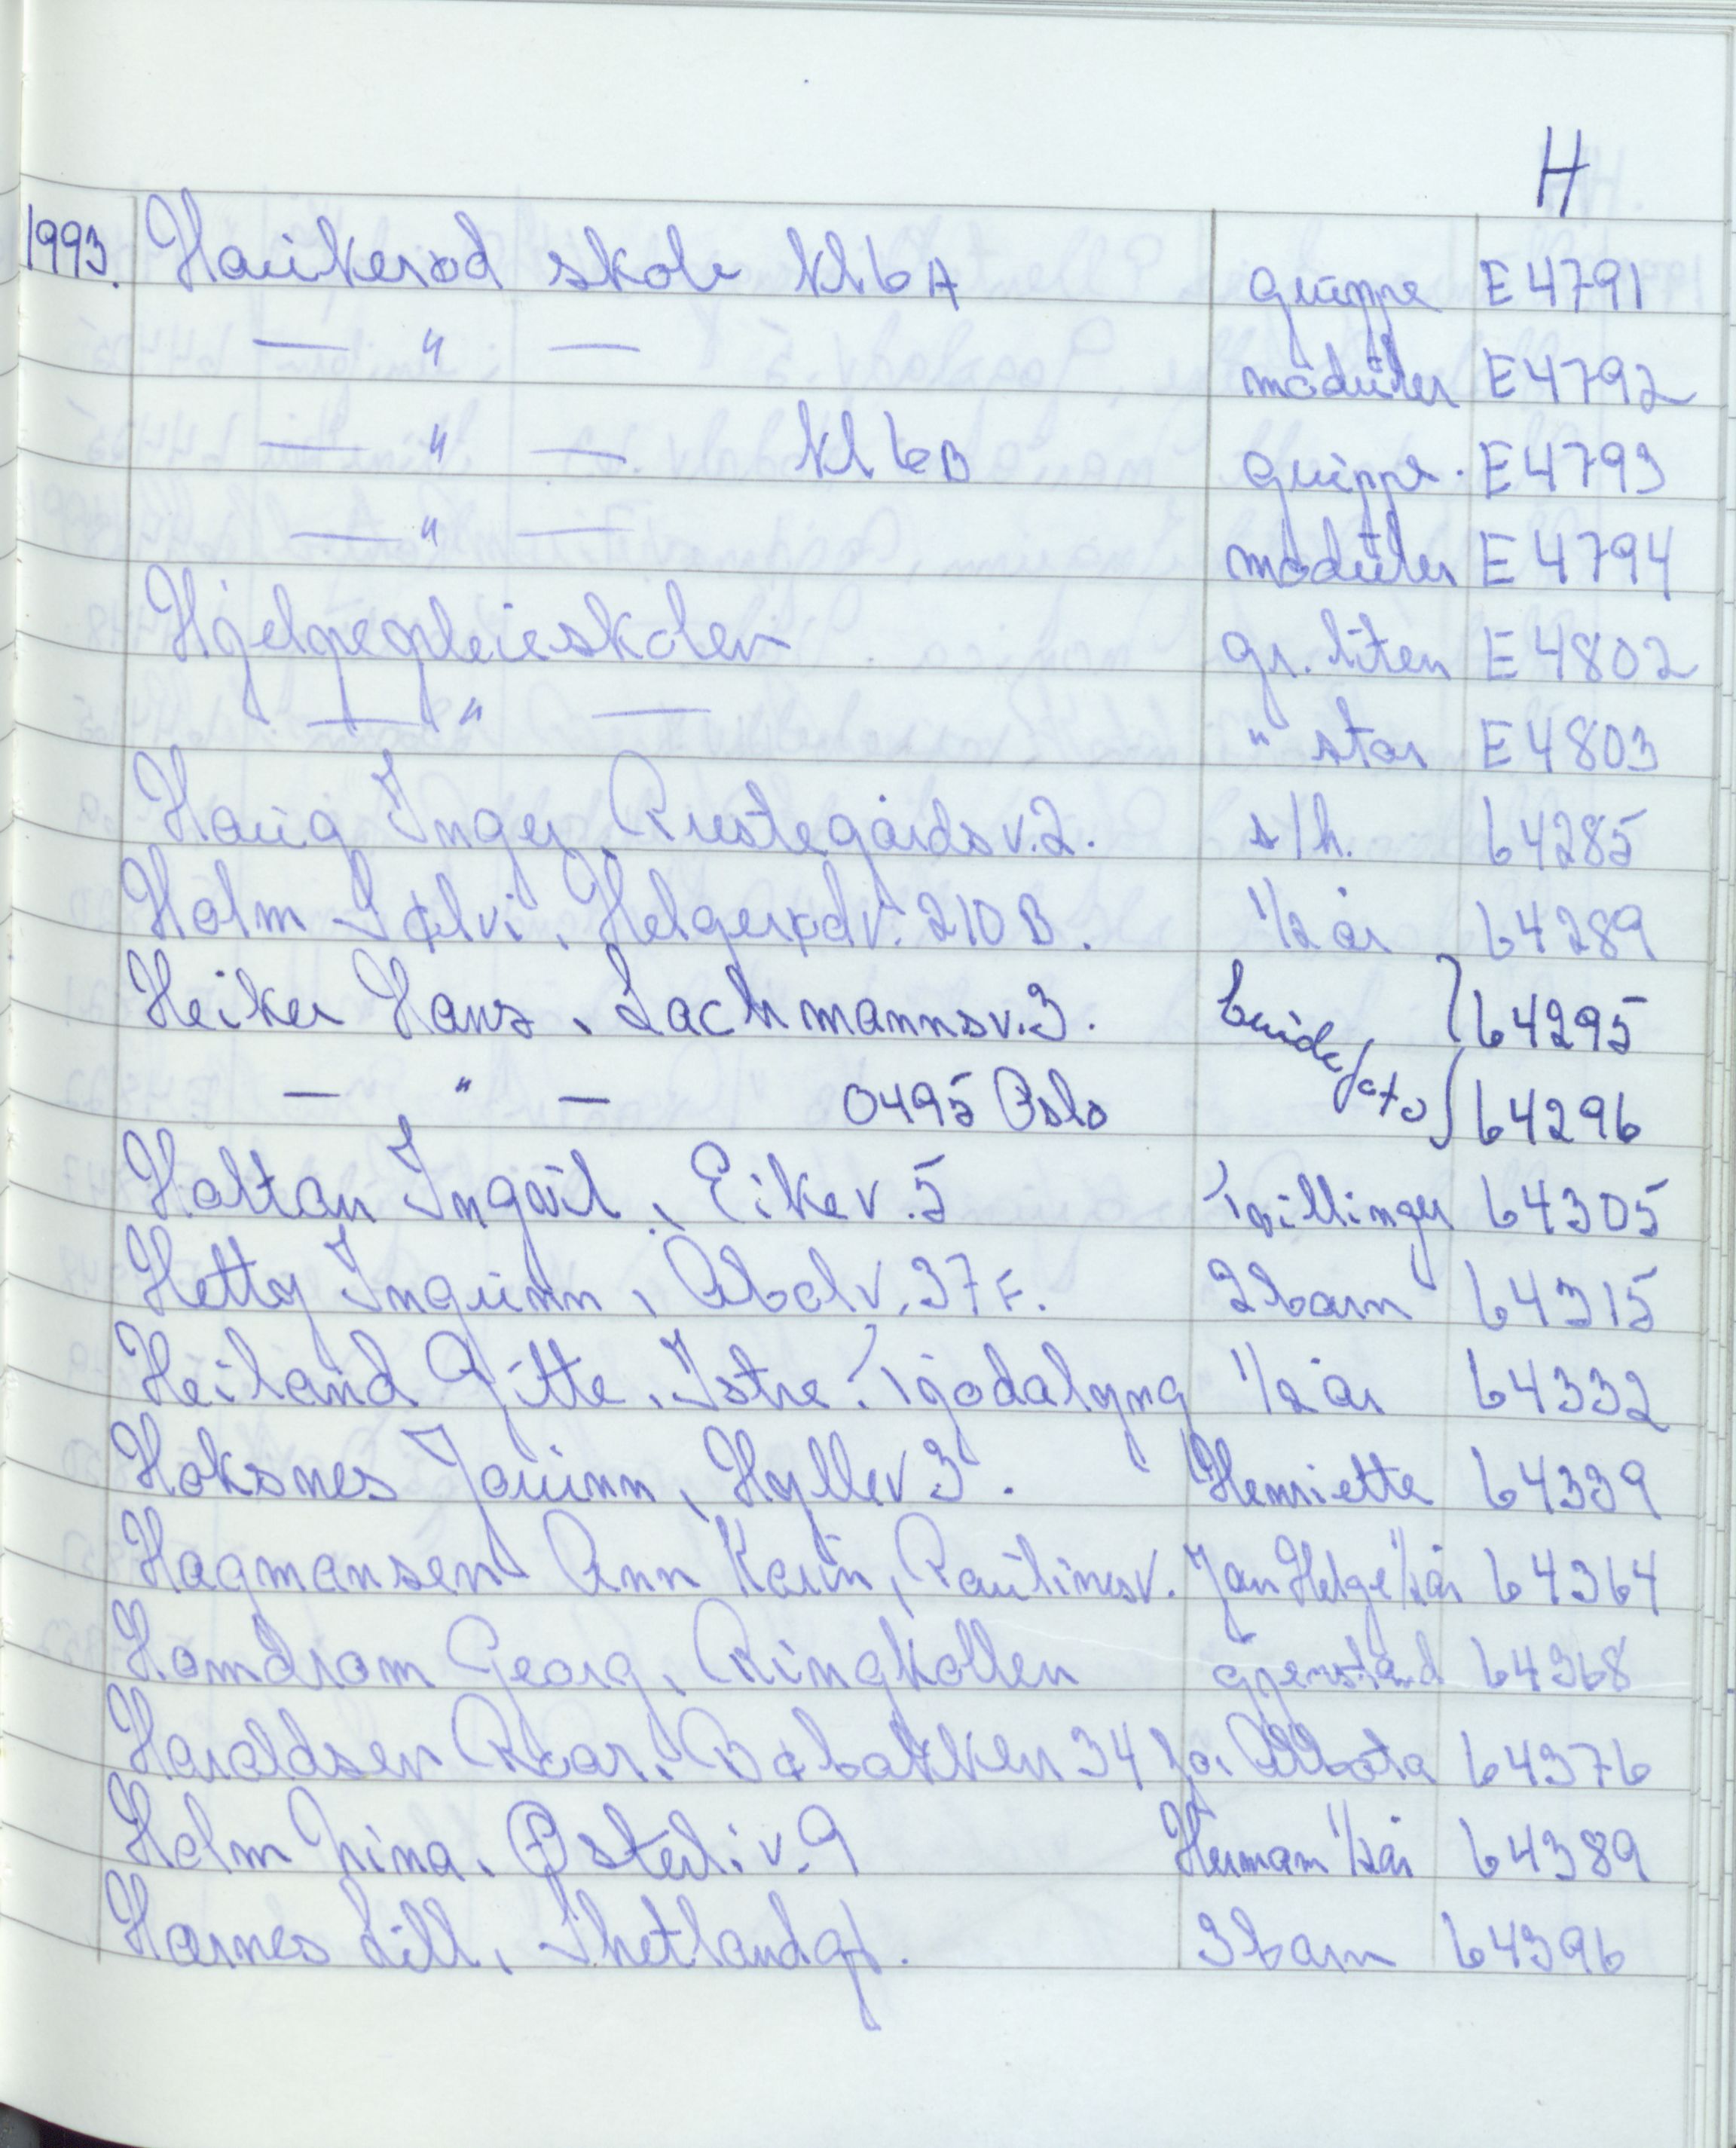 H
1993. Haukerød skole kl 6A gruppe E 4791
— " — moduler E 4792
— " — kl 6B gruppe. E 4793
— " — moduler E 4794
Hjelpepleieskolen gr. liten E 4802
— " — " stor E 4803
Haug Inger, Rustegårdsv. 2. s/h. 64285
Holm Sølvi, Helgerødv. 210 B. 1/2 år 64289
Heiker Hans, Lachmannsv. 3. brude } 64295
— " — 0495 Oslo foto } 64296
Holtan Ingvil, Eikev. 5 Tvillinger 64305
Hetty Ingunn, Abolv. 37 F. 2 barn 64315
Heiland Gitte, Istre. Tjodalyng 1/2 år 64332
Hoksnes Jorunn, Hyllev 3. Henriette 64339
Hagmansen Ann Karin, Paulinesv. Jan Helge 1/2 år 64364
Homdrom Georg, Ringkollen gjenstand 64368
Haraldsen Roar, Bøbakken 34 for Albota 64376
Holm Nina, Østerliv. 9 Herman 1/2 år 64389
Harnes Lill, Shetlandgt. 3 barn 64396